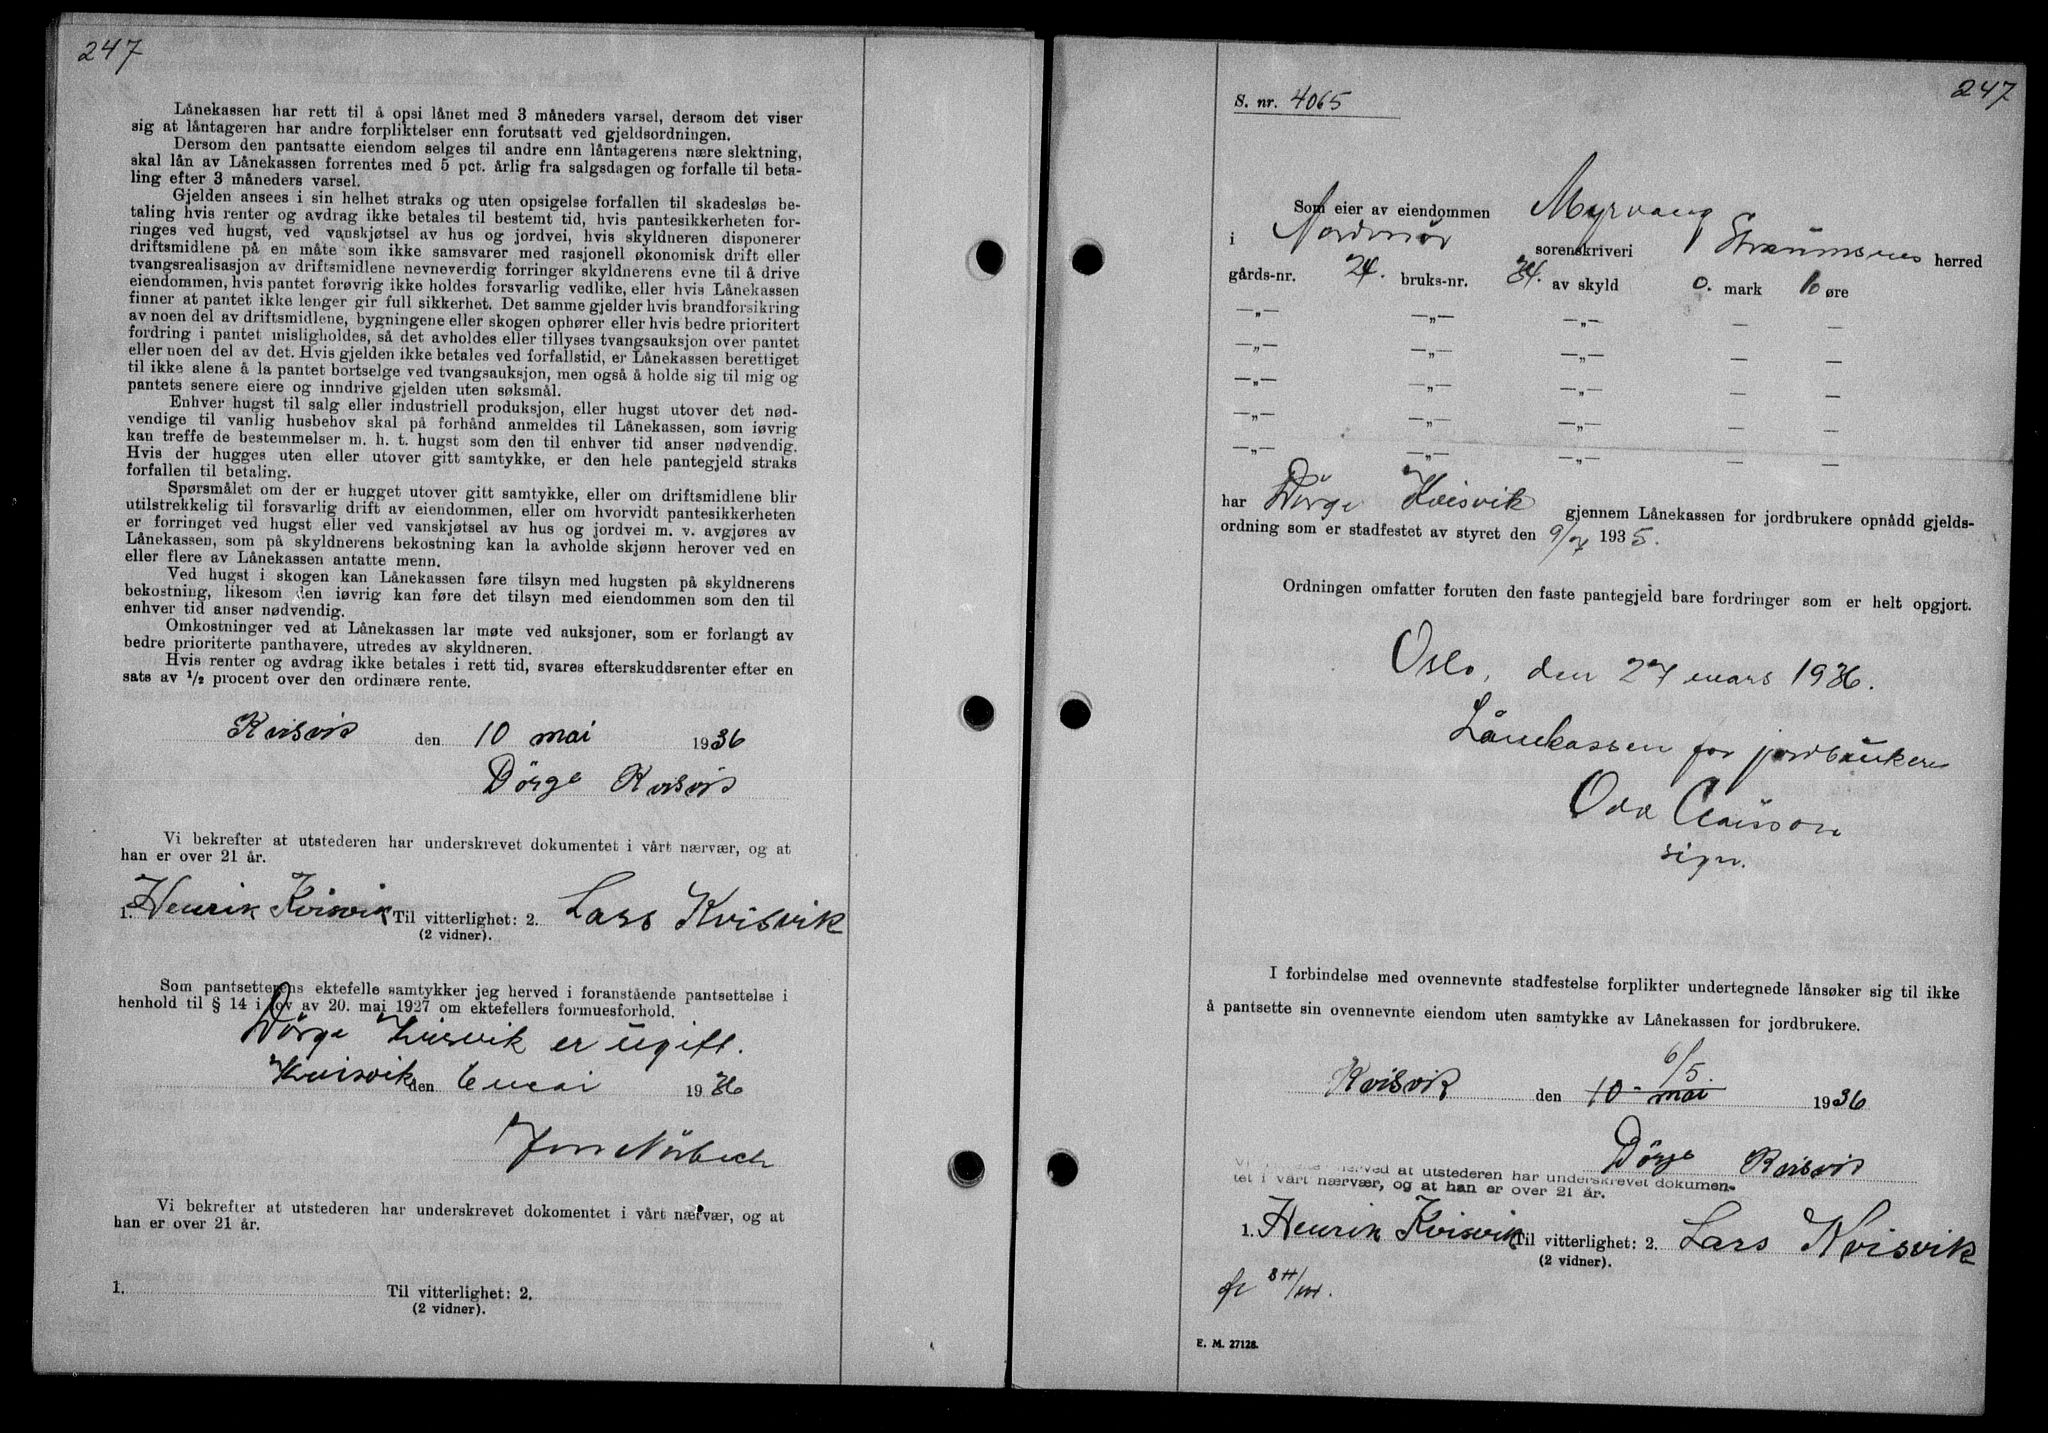 247
Lånekassen har rett til å opsi lånet med 3 måneders varsel, dersom det viser
sig at låntageren har andre forpliktelser enn forutsatt ved gjeldsordningen.
Dersom den pantsatte eiendom selges til andre enn låntagerens nære slektning,
skal lån av Lånekassen forrentes med 5 pct. årlig fra salgsdagen og forfalle til beta-
ling efter 3 måneders varsel.
Gjelden ansees i sin helhet straks og uten opsigelse forfallen til skadesløs be-
taling hvis renter og avdrag ikke betales til bestemt tid, hvis pantesikkerheten for-
ringes ved hugst, ved vanskjøtsel av hus og jordvei, hvis skyldneren disponerer
driftsmidlene på en måte som ikke samsvarer med rasjonell økonomisk drift eller
tvangsrealisasjon av driftsmidlene nevneverdig forringer skyldnerens evne til å drive
eiendommen, hvis pantet forøvrig ikke holdes forsvarlig vedlike, eller hvis Lånekassen
finner at pantet ikke lenger gir full sikkerhet. Det samme gjelder hvis brandforsikring
av noen del av driftsmidlene, bygningene eller skogen ophører eller hvis bedre prioritert
fordring i pantet misligholdes, så det avholdes eller tillyses tvangsauksjon over pantet
eller noen del av det. Hvis gjelden ikke betales ved forfallstid, er Lånekassen berettiget
til ikke alene å la pantet bortselge ved tvangsauksjon, men også å holde sig til mig og
pantets senere eiere og inndrive gjelden uten søksmål.
Enhver hugst til salg eller industriell produksjon, eller hugst utover det nød-
vendige til vanlig husbehov skal på forhånd anmeldes til Lånekassen, som iøvrig
kan treffe de bestemmelser m. h. t. hugst som den til enhver tid anser nødvendig.
Hvis der hugges uten eller utover gitt samtykke, er den hele pantegjeld straks
forfallen til betaling.
Spørsmålet om der er hugget utover gitt samtykke, eller om driftsmidlene blir
utilstrekkelig til forsvarlig drift av eiendommen, eller om hvorvidt pantesikkerheten
er forringet ved hugst eller ved vanskjøtsel av hus og jordvei m. v. avgjøres av
Lånekassen, som på skyldnerens bekostning kan la avholde skjønn herover ved en
eller flere av Lånekassen antatte menn.
Ved hugst i skogen kan Lånekassen føre tilsyn med hugsten på skyldnerens
bekostning, likesom den iøvrig kan føre det tilsyn med eiendommen som den til
enhver tid anser nødvendig.
Omkostninger ved at Lånekassen lar møte ved auksjoner, som er forlangt av
bedre prioriterte panthavere, utredes av skyldneren.
Hvis renter og avdrag ikke betales i rett tid, svares efterskuddsrenter efter en
sats av 1/2 procent over den ordinære rente.
Kvisvik den 10 mai 1936
Dörge Kvisvik
Vi bekrefter at utstederen har underskrevet dokumentet i vårt nærvær, og at
han er over 21 år.
1. Henrik Kvisvik Til vitterlighet: 2. Lars Kvisvik
(2 vidner).
Som pantsetterens ektefelle samtykker jeg herved i foranstående pantsettelse i
henhold til § 14 i lov av 20. mai 1927 om ektefellers formuesforhold.
Dørge Kvisvik er ugift.
Kvisvik den 6 mai 1936
Jon Nørbech
Vi bekrefter at utstederen har underskrevet dokomentet i vårt nærvær, og at
han er over 21 år.
1. Til vitterlighet: 2.
(2 vidner).
247
S. nr. 4065
Som eier av eiendommen Myrvang
i Nordmør sorenskriveri Straumsnes herred
gårds-nr. 24. bruks-nr. 34. av skyld 0. mark 10 øre
—„— —„— —„— — —
—„— —„— —„— — —
—„— —„— —„— — —
—„— —„— —„— — —
—„— —„— —„— — —
har Dørge Kvisvik gjennem Lånekassen for jordbrukere opnådd gjelds-
ordning som er stadfestet av styret den 9/7 1935.
Ordningen omfatter foruten den faste pantegjeld bare fordringer som er helt opgjort.
Oslo, den 27 mars 1936.
Lånekassen for jordbrukere
sign.
I forbindelse med ovennevnte stadfestelse forplikter undertegnede lånsøker sig til ikke
å pantsette sin ovennevnte eiendom uten samtykke av Lånekassen for jordbrukere.
6/5.
Kvisvik den 10 mai 1936
Dörge Kvisvik
Vi herved at utstederen har underskrevet dokumen-
tet i vårt nærvær, og at han er over 21 år.
1. Henrik Kvisvik Til vitterlighet: 2. Lars Kvisvik
(2 vidner).
E. M. 27128.